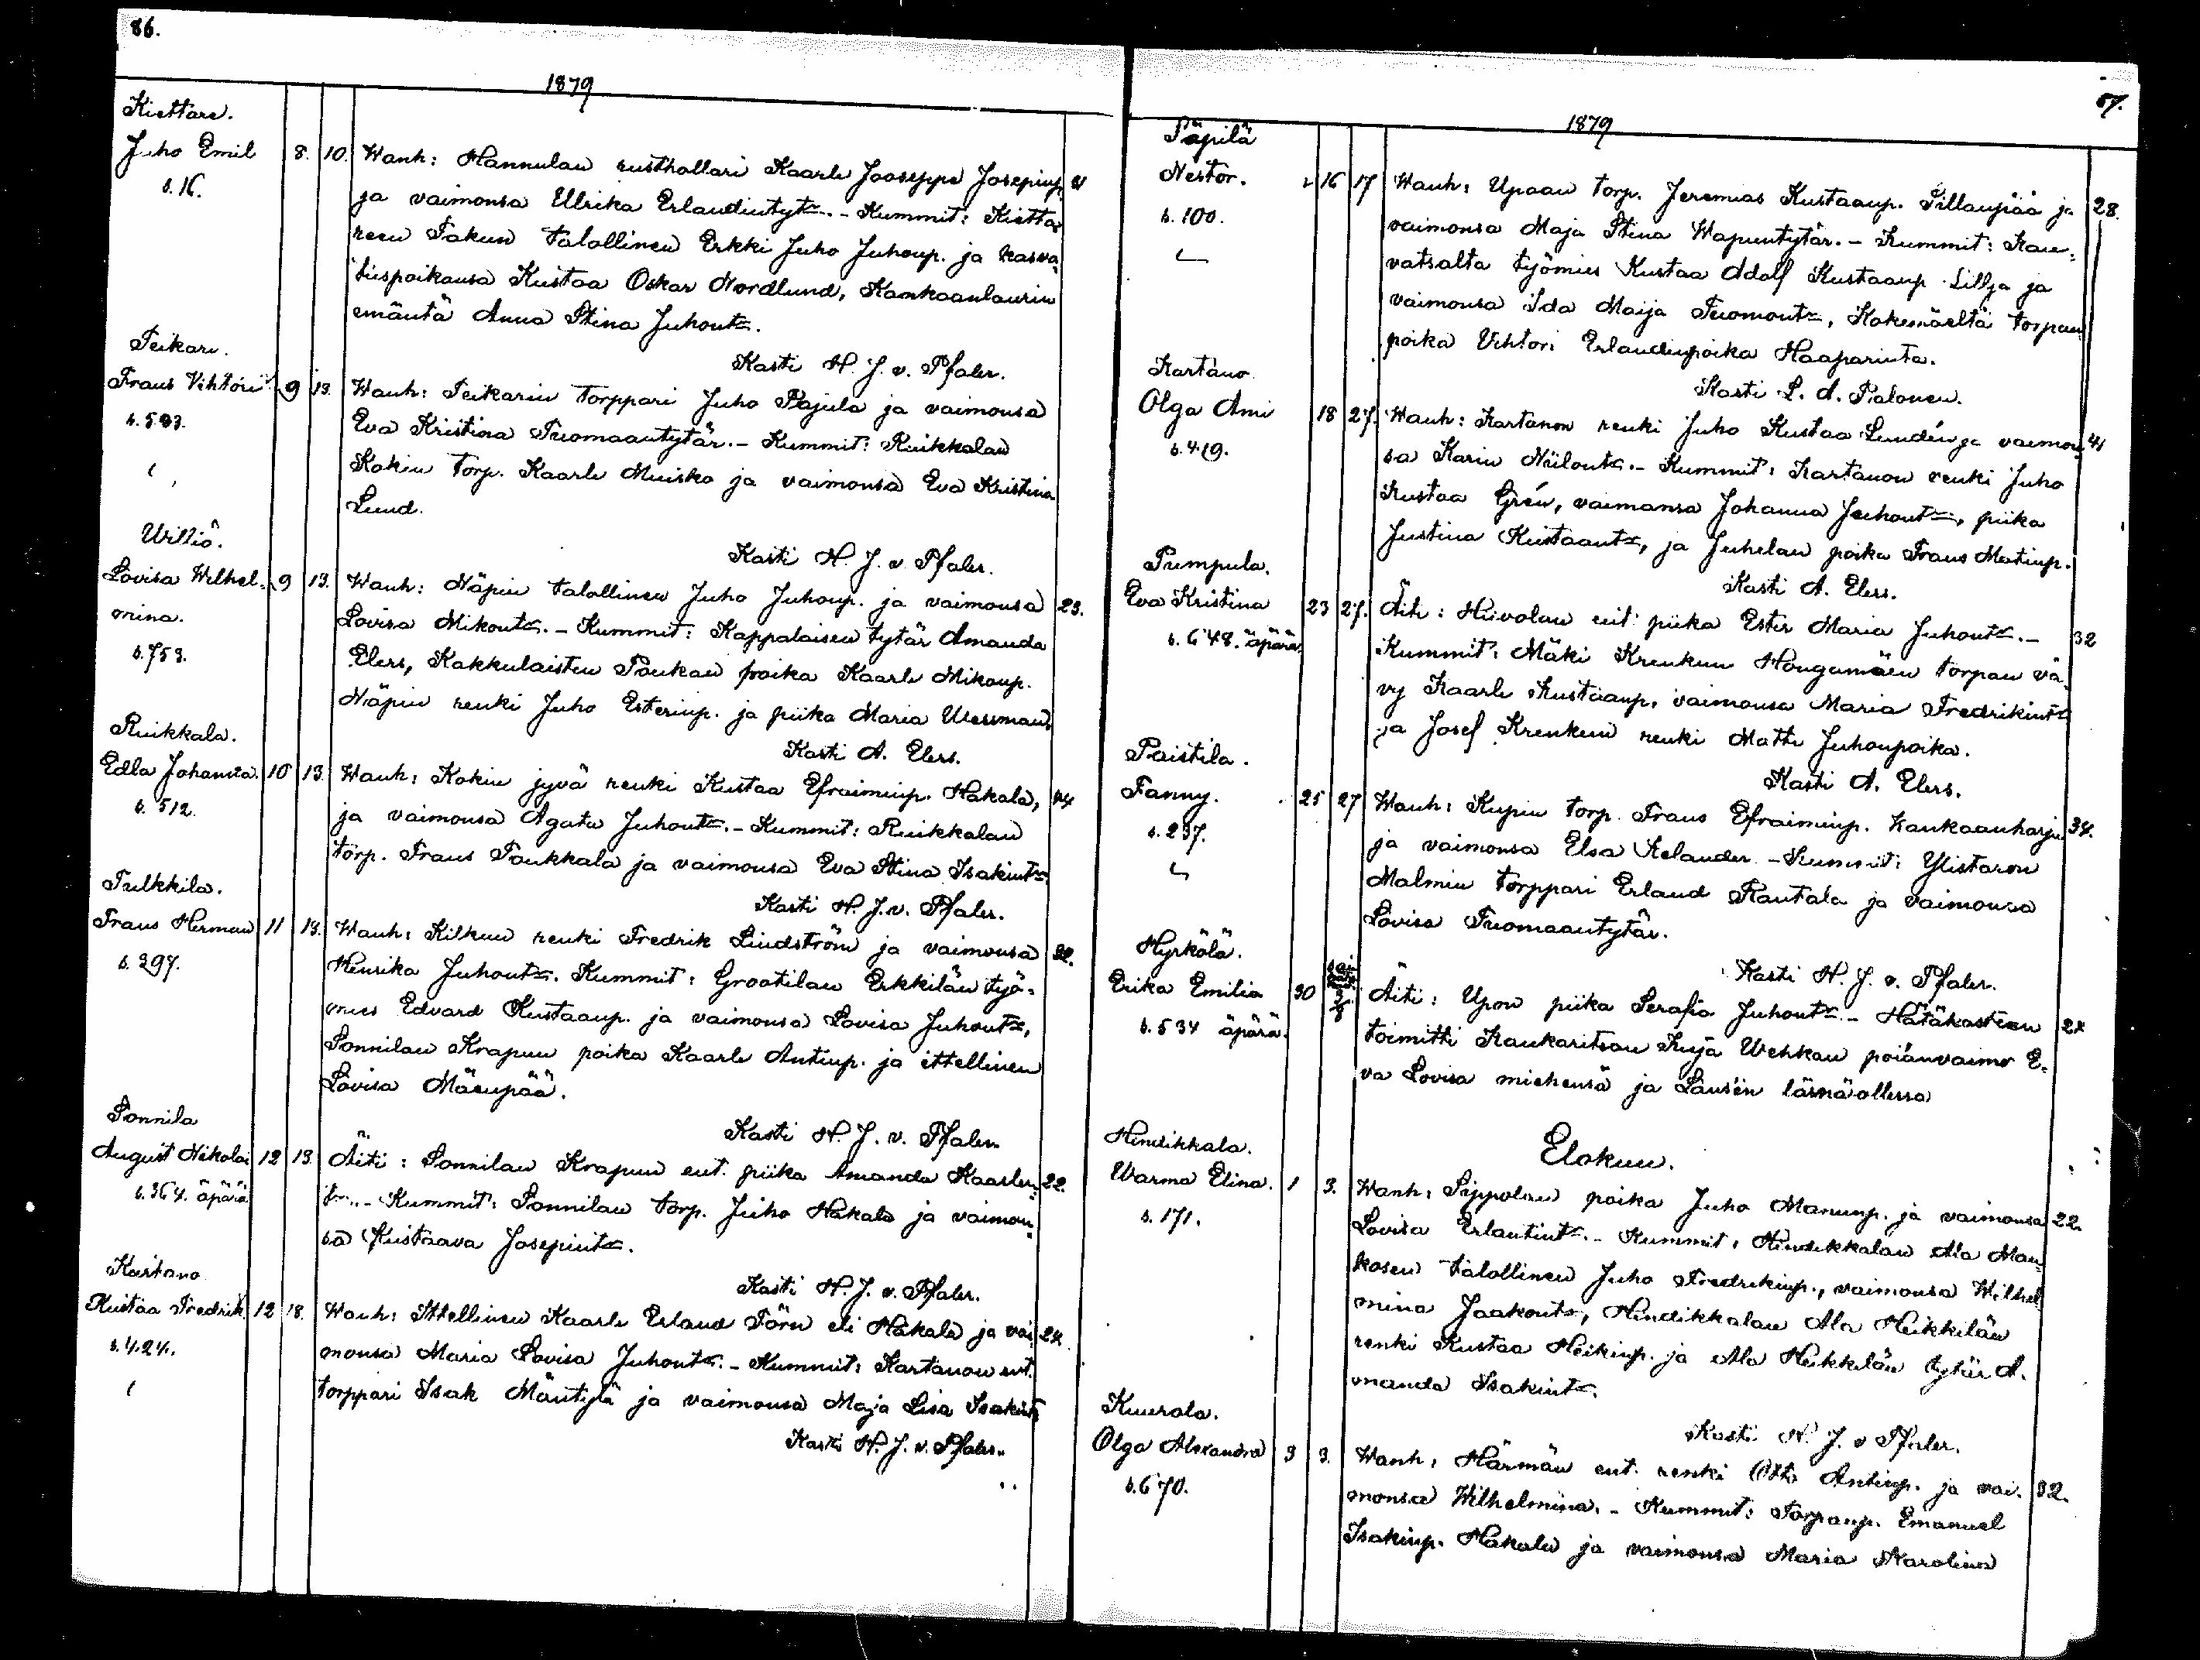 86.
1879
Kiettare.
Juho Emil 8. 10. Wanh: Hannulan rusthollari Kaarle Jooseppi Josepinp.
s. 16. ja vaimonsa Ullrika Erlandintyt:. - Kummit: Kietta-
reen Takun talollinen Erkki Juho Juhonp. ja kasva-
tuspoikansa Kustaa Oskar Nordlund, Kankaanlaurin
emäntä Anna Stina Juhont:.
Kasti H. J. v. Pfaler.
Teikari.
Frans Vihtori 9 13. Wanh: Teikarin torppari Juho Pajula ja vaimonsa
s. 593. Eva Kristina Tuomaantytär. - Kummit: Ruikkalan
Kokin torp. Kaarle Muisko ja vaimonsa Eva Kristina
Lund.
Kasti H. J. v. Pfaler.
Williö.
Lovisa Wilhel- 9 13. Wanh: Näpin talollinen Juho Juhonp. ja vaimonsa 23.
mina. Lovisa Mikont:. - Kummit: Kappalaisen tytär Amanda
s. 753. Elers, Kakkulaisten Paukan poika Kaarle Mikonp.
Näpin renki Juho Esterinp. ja piika Maria Wessman.
Kasti A. Elers.
Ruikkala.
Edla Johanna. 10 13. Wanh: Kokin jyvä renki Kustaa Efraiminp. Hakala, 44
s. 512. ja vaimonsa Agata Juhont:. - Kummit: Ruikkalan
torp. Frans Paukkala ja vaimonsa Eva Stina Isakint:
Kasti H. J. v. Pfaler.
Tulkkila.
Frans Herman 11 13. Wanh: Kilkun renki Fredrik Lindström ja vaimonsa 32.
s. 297. Henrika Juhont:. Kummit: Grootilan Erkkilän työ-
mies Edvard Kustaanp. ja vaimonsa Lovisa Juhont:,
Sonnilan Krapun poika Kaarle Antinp. ja ittellinen
Lovisa Mäenpää.
Kasti H. J. v. Pfaler.
Sonnila
August Nikolai 12 13. Äiti: Sonnilan Krapun ent. piika Amanda Kaarlen- 22.
s. 364. äpärä t:. - Kummit: Sonnilan torp. Juho Hakala ja vaimon-
sa Kustaava Josepint:.
Kasti H. J. v. Pfaler.
Kartano
Kustaa Fredrik 12 18. Wanh: Ittellinen Kaarle Erland Törn eli Hakala ja vai- 24.
s. 424. monsa Maria Lovisa Juhont:. - Kummit: Kartanon ent.
torppari Isak Mäntylä ja vaimonsa Maja Lisa Isakint:
Kasti H. J. v. Pfaler.
87.
1879
Päpilä
Nestor. 16 17 Wanh: Upaan torp. Jeremias Kustaanp. Pillanpää ja 28.
s. 100. vaimonsa Maja Stina Wapuntytär. - Kummit: Kau-
vatsalta työmies Kustaa Adolf Kustaanp. Lillja ja
vaimonsa Ida Maija Tuomont:, Kokemäeltä torpan
poika Vihtori Erlandinpoika Haaparinta.
Kasti L. A. Palonen.
Kartano
Olga Ami 18 27. Wanh: Kartanon renki Juho Kustaa Lundén ja vaimon- 41
s. 419. sa Karin Niilont:. - Kummit: Kartanon renki Juho
Kustaa Grén, vaimonsa Johanna Juhont:, piika
Justina Kustaant:, ja Juhelan poika Frans Matinp.
Kasti A. Elers.
Pumpula.
Eva Kristina 23 27. Äiti: Hiivolan ent. piika Ester Maria Juhont:. - 32
s. 648. äpärä. Kummit: Mäki Krenkun Hongamäen torpan vä-
vy Kaarle Kustaanp., vaimonsa Maria Fredrikint:
ja Josef Krenkun renki Matti Juhonpoika.
Kasti A. Elers.
Paistila.
Fanny. 25 27 Wanh: Kupin torp. Frans Efraiminp. Kankaanharju 34.
s. 237. ja vaimonsa Elsa Kelander. - Kummit: Ylistaron
Malmin torppari Erland Rautala ja vaimonsa
Lovisa Tuomaantytär.
Kasti H. J. v. Pfaler.
Hyrkölä.
Erika Emilia 30 Äiti: Upon piika Serafia Juhont:. - Hätäkasteen 24
s. 534 äpärä. toimitti Kaukaritsan Kuja Wehkan poianvaimo E-
va Lovisa miehensä ja Lausen läsnäollessa
Elokuu.
Hindikkala.
Warma Elina. 1 3. Wanh: Sippolan poika Juho Manunp. ja vaimonsa 22.
s. 171. Lovisa Erlantint:. - Kummit: Hindikkalan Ala Mau-
kosen talollinen Juho Fredrikinp., vaimonsa Wilhel-
mina Jaakont:, Hindikkalan Ala Heikkilän
renki Kustaa Heikinp. ja Ala Heikkilän tytär A-
manda Isakint:.
Kasti H. J. v Pfaler.
Kuurola.
Olga Alexandra 3 3. Wanh: Härmän ent. renki Otto Antinp. ja vai- 32.
s. 670. monsa Wilhelmina. - Kummit: Torpanp. Emanuel
Isakinp. Hakala ja vaimonsa Maria Karolina